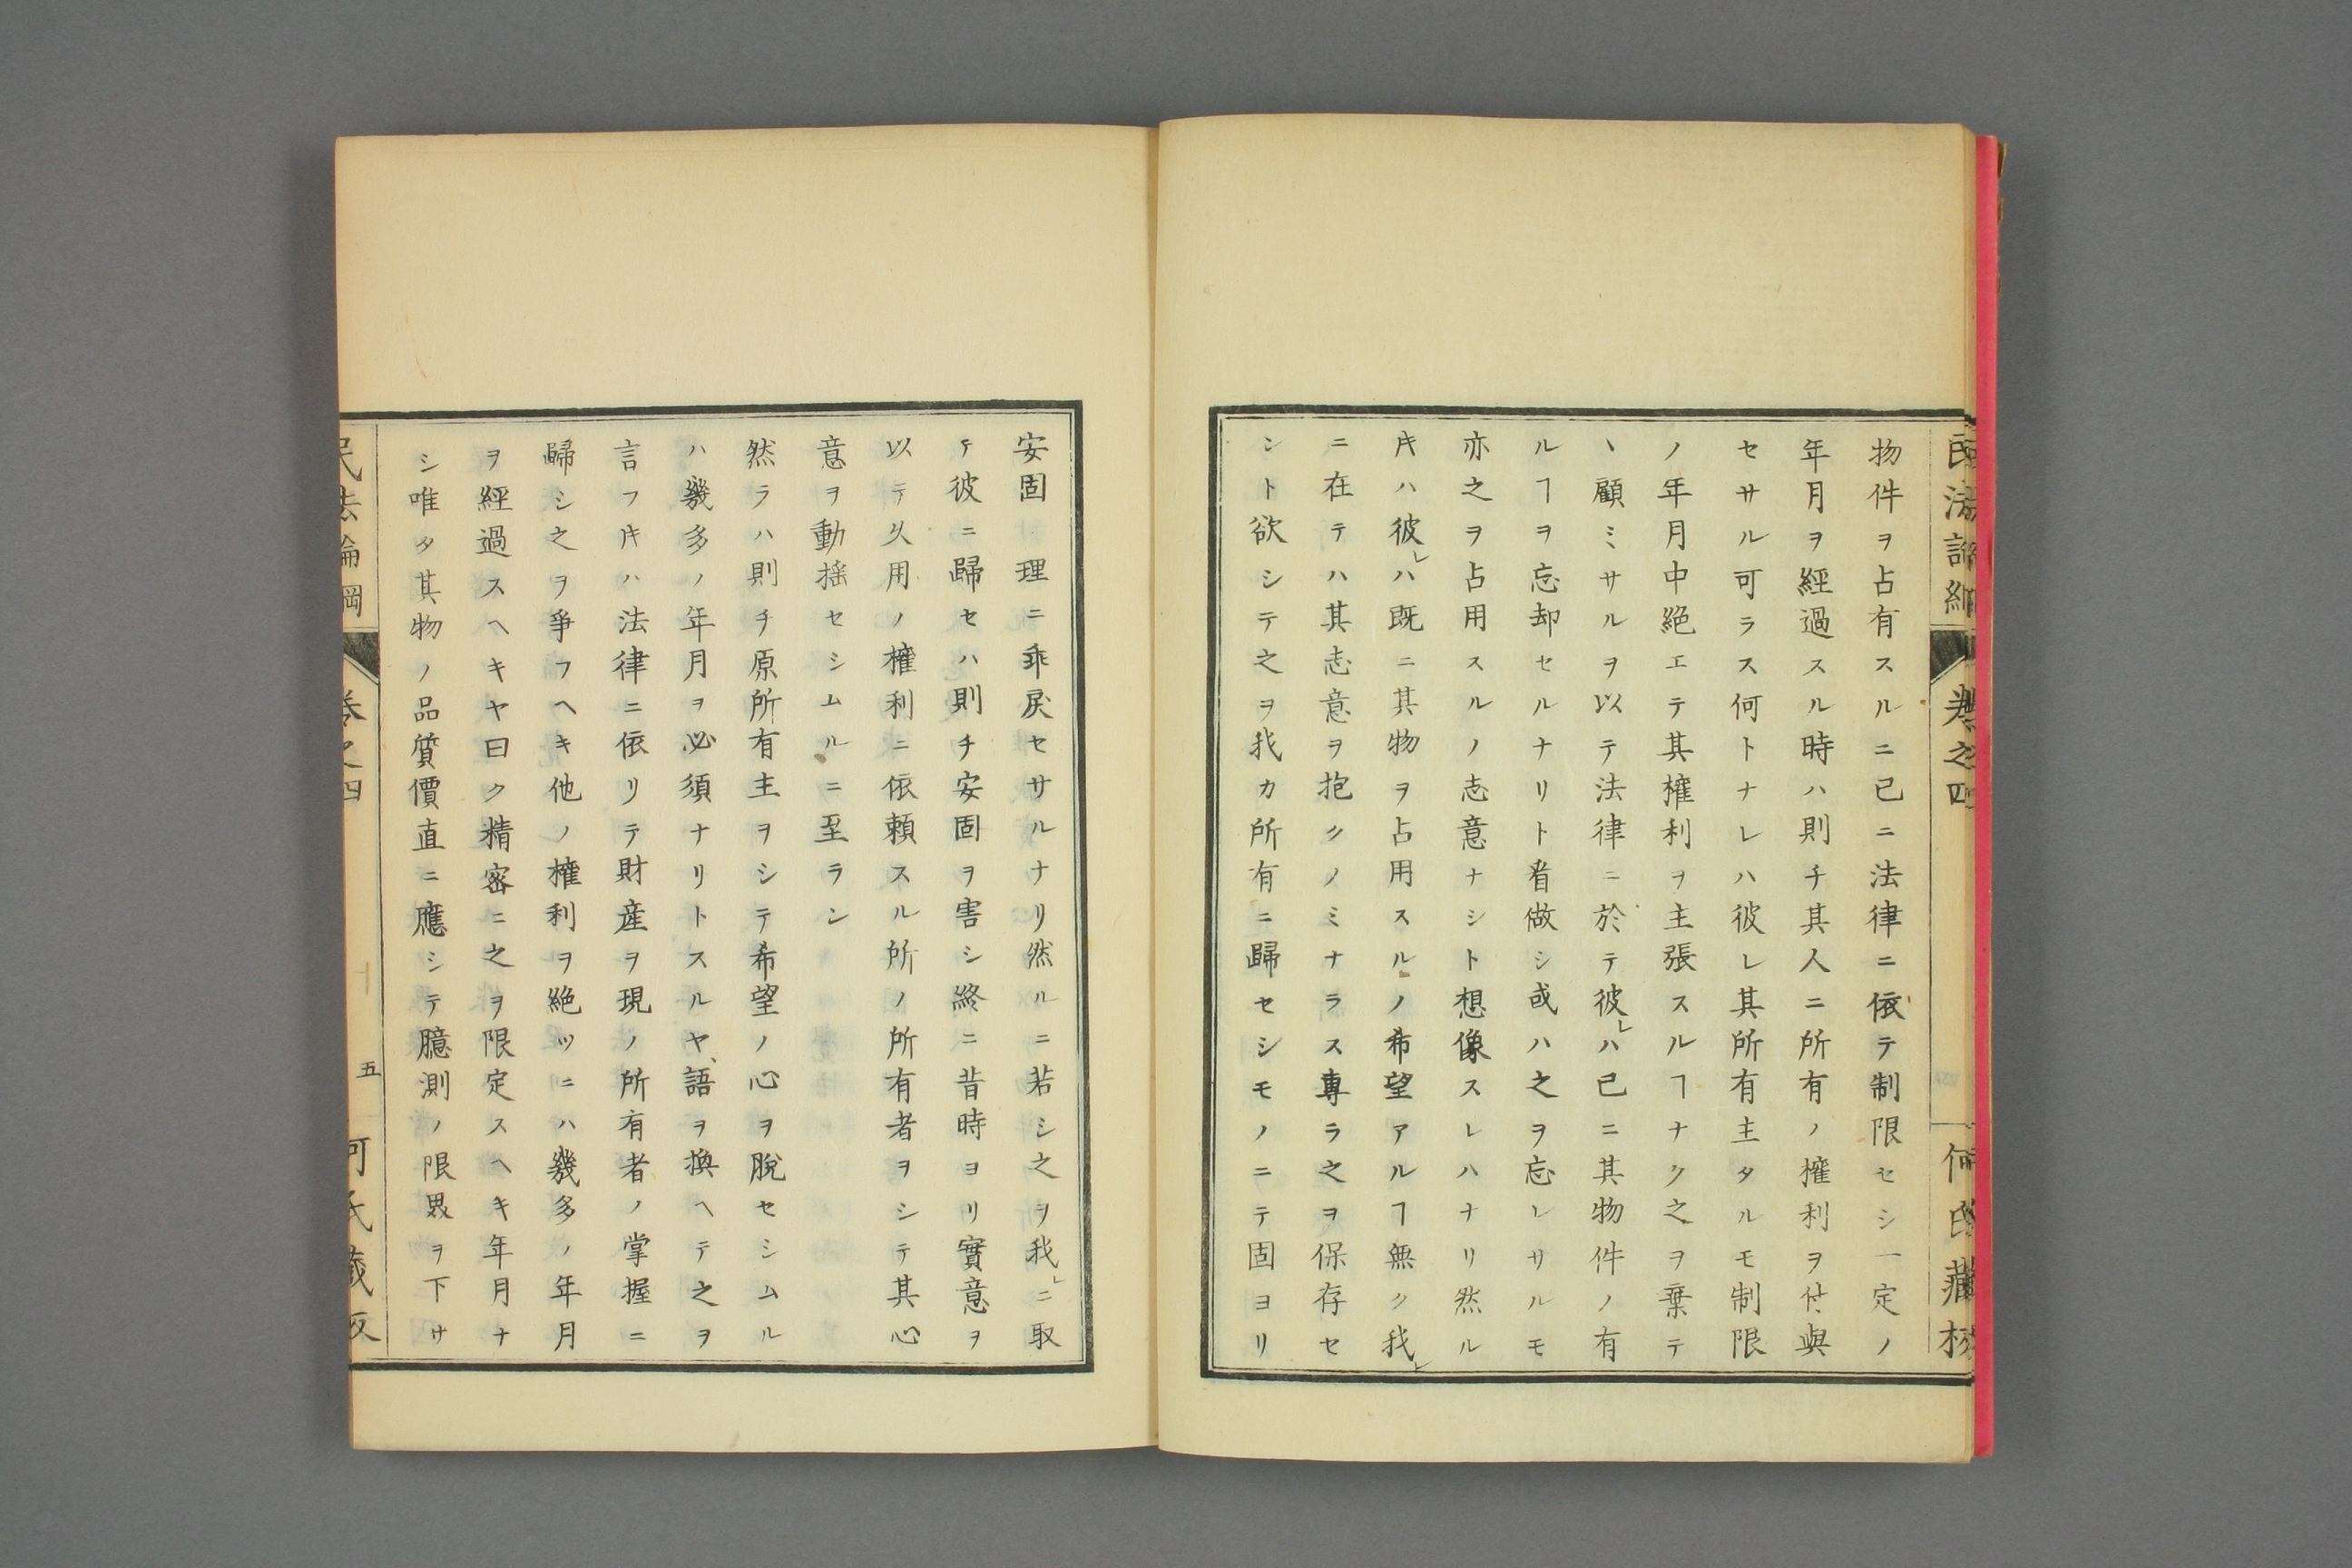 民法論綱
卷之四
何氏藏
物件ヲ占有スルニ已ニ法律ニ依テ制限セシ一定ノ
年月ヲ經過スル時ハ則チ其人ニ所有ノ權利ヲ付與
セサル可ラス何トナレハ彼レ其所有主タルモ制限
ノ年月中絕エテ其權利ヲ主張スルヿナク之ヲ棄テ
ヽ顧ミサルヲ以テ法律ニ於テ彼レハ已ニ其物件ノ有
ルヿヲ忘却セルナリト看做シ或ハ之ヲ忘レサルモ
亦之ヲ占用スルノ志意ナシト想像スレハナリ然ル
𪜈ハ彼レハ既ニ其物ヲ占用スルノ希望アルヿ無ク我レ
ニ在テハ其志意ヲ抱クノミナラス專ラ之ヲ保存セ
ント欲シテ之ヲ我カ所有ニ歸セシモノニテ固ヨリ
安固理ニ乖戾セサルナリ然ルニ若シ之ヲ我レニ取
テ彼ニ歸セハ則チ安固ヲ害シ終ニ昔時ヨリ實意ヲ
以テ久用ノ權利ニ依頼スル所ノ所有者ヲシテ其心
意ヲ動揺セシムルニ至ラン
然ラハ則チ原所有主ヲシテ希望ノ心ヲ脫セシムル
ハ幾多ノ年月ヲ必須ナリトスルヤ、語ヲ換ヘテ之ヲ
言フ𪜈ハ法律ニ依リテ財産ヲ現ノ所有者ノ掌握ニ
歸シ之ヲ爭フヘキ他ノ權利ヲ絕ツニハ幾多ノ年月
ヲ經過スヘキヤ曰ク精密ニ之ヲ限定スヘキ年月ナ
シ唯タ其物ノ品質價直ニ應シテ臆測ノ限界ヲ下サ
民法論綱
卷之四
五
何氏藏版